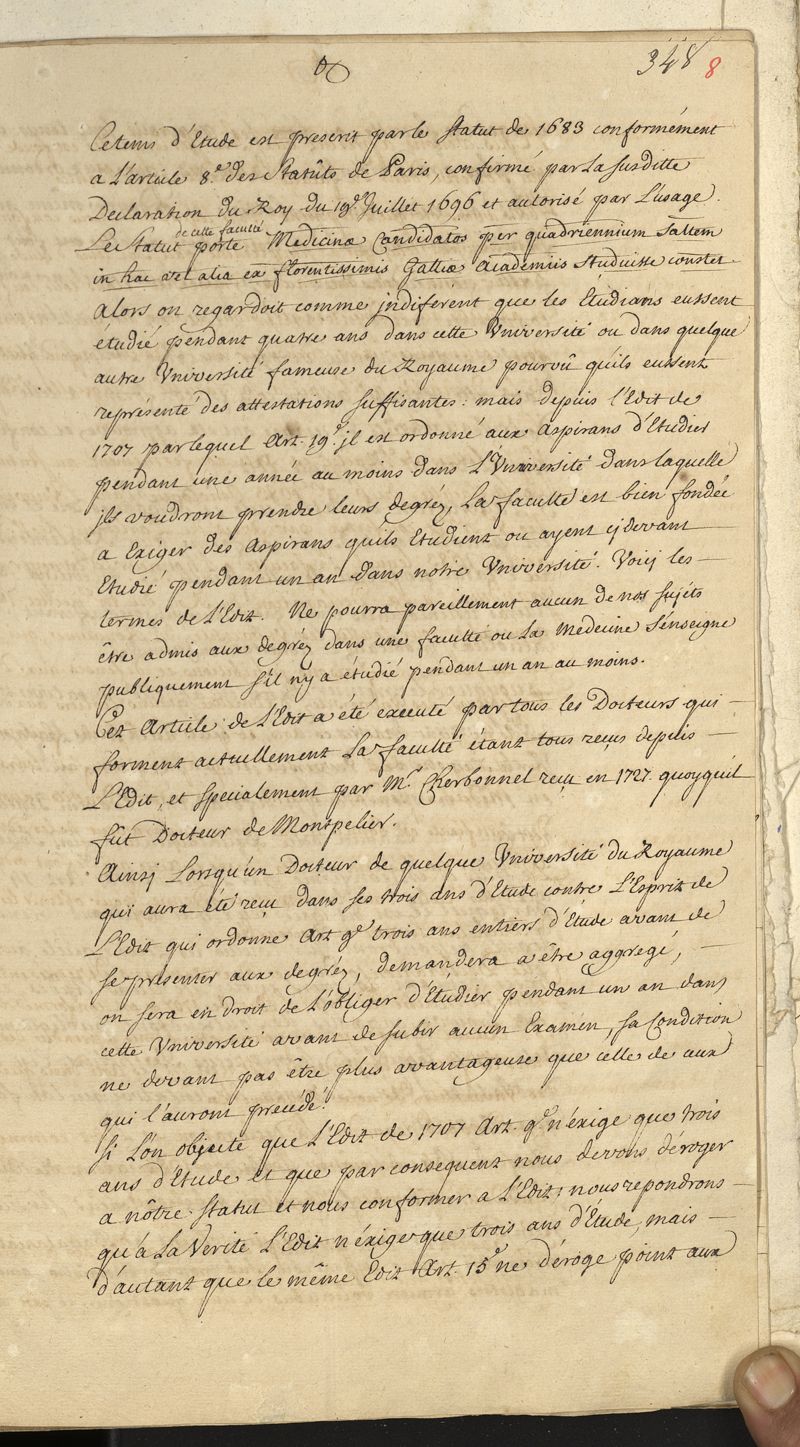 348 8
Ce tems d'Etude est prescrit par le statut de 1683 conformément
a L'article 8.e des Statûts de Paris, confirmé par La susditte
Declaration du Roy du 19.e Juillet 1696 et autorisé par L'usage.
de cette faculté
Le Statut porte Medicinæ Candidatos per quadriennium saltem
in hac vel alia ex florentissimis Galliæ Academiis studuisse constet.
Alors on regardoit comme jndiférent que les Etudians eussent
étudié pendant quatre ans dans cette Vniversité ou dans quelque
autre Vniversité fameuse du Royaume pourvû qu'ils eussent
représenté des attestations suffisantes: mais depuis l'Edit de
1707 par lequel Art. 19.e jl est ordonné aux Aspirans d'Etudier
pendant une année au moins dans L'Vniversité dans laquelle
jls voudront prendre leurs degréz, La faculté est bien fondée
a Exiger des Aspirans qu'ils Etudient ou ayent cj devant
Etudié pendant un an dans notre Vniversité. Voicj les
termes de L'Edit. Ne pourra pareillement aucun de nos sujéts
être admis aux degréz dans une faculté ou La Medecine s'énseigne
publiquement s'il n'y a étudié pendant un an au moins.
Cet Article de L'Edit a été executé par tous les Docteurs qui
forment actuellement La faculté étant tous reçus depuis
L'Edit, et specialement par Mr. Cherbonnel reçu en 1727. quoyquil
fût Docteur de Montpelier.
Ainsj Lorsqu'un Docteur de quelque Vniversité du Royaume
qui aura été reçu dans ses trois ans d'Etude contre L'Esprit de
L'Edit qui ordonne Art 9.e trois ans entiers d'Etude avant de
se présenter aux degréz, demandera a être aggregé,
on sera en droit de L'obliger d'Etudier pendant un an dans
cette Vniversité avant de subir aucun Examen, sa Condition
ne devant pas être plus avantageuse que celle de aux
qui l'auront precédé.
Si L'on objecte que L'Edit de 1707 Art. 9.e n'éxige que trois
ans d'Etude et que par consequent nous devons déroger
a nôtre Statut et nous conformer a L'Edit; nous repondrons
qu'a La Verité L'Edit n'éxige que trois ans d'Etude, mais
d'autant que le même Edit Art. 15.e ne déroge point aux